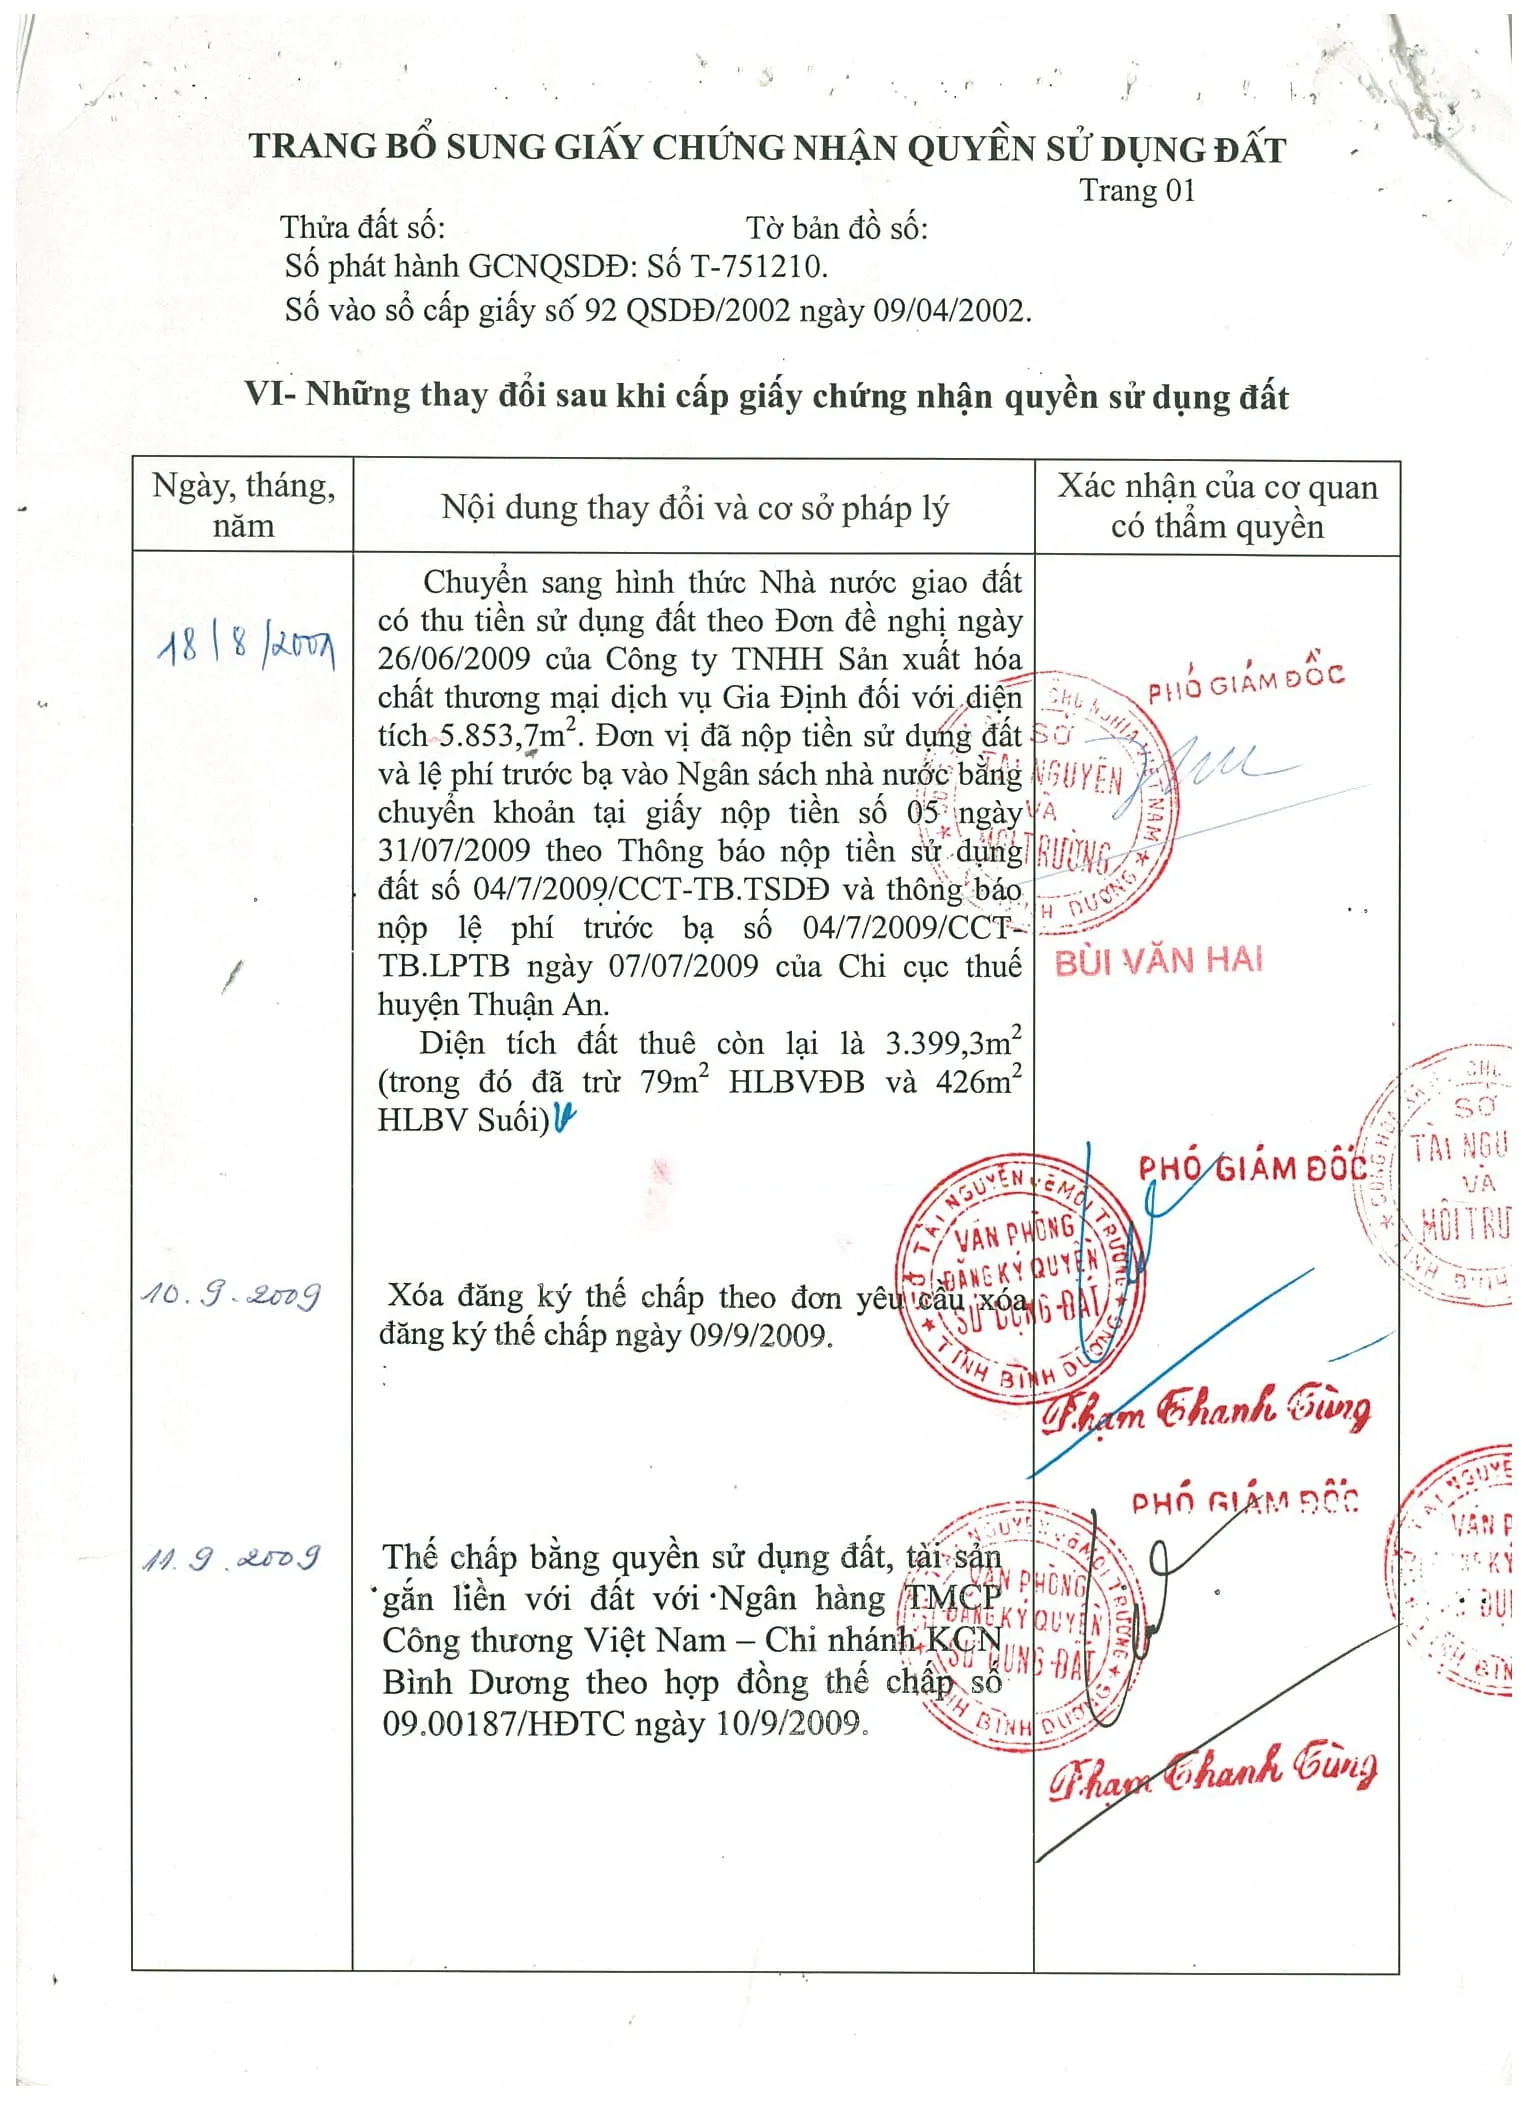 TRANG BỔ SUNG GIẤY CHỨNG NHẬN QUYỀN SỬ DỤNG ĐẤT
Trang 01
Thửa đất số: Tờ bản đồ số:
Số phát hành GCNQSDĐ: Số T-751210.
Số vào sổ cấp giấy số 92 QSDĐ/2002 ngày 09/04/2002.
VI- Những thay đổi sau khi cấp giấy chứng nhận quyền sử dụng đất
Ngày, tháng,
năm
Nội dung thay đổi và cơ sở pháp lý
Xác nhận của cơ quan
có thẩm quyền
18/8/2009
Chuyển sang hình thức Nhà nước giao đất
có thu tiền sử dụng đất theo Đơn đề nghị ngày
26/06/2009 của Công ty TNHH Sản xuất hóa
chất thương mại dịch vụ Gia Định đối với diện
tích 5.853,7m². Đơn vị đã nộp tiền sử dụng đất
và lệ phí trước bạ vào Ngân sách nhà nước bằng
chuyển khoản tại giấy nộp tiền số 05 ngày
31/07/2009 theo Thông báo nộp tiền sử dụng
đất số 04/7/2009/CCT-TB.TSDĐ và thông báo
nộp lệ phí trước bạ số 04/7/2009/CCT-
TB.LPTB ngày 07/07/2009 của Chi cục thuế
huyện Thuận An.
Diện tích đất thuê còn lại là 3.399,3m²
(trong đó đã trừ 79m² HLBVĐB và 426m²
HLBV Suối)
PHÓ GIÁM ĐỐC
SỞ
TÀI NGUYÊN
VÀ
MÔI TRƯỜNG
BÙI VĂN HAI
SỞ
TÀI NGU
VÀ
MÔI TRƯ
10.9.2009
Xóa đăng ký thế chấp theo đơn yêu cầu xóa
đăng ký thế chấp ngày 09/9/2009.
PHÓ GIÁM ĐỐC
SỞ TÀI NGUYÊN VÀ MÔI TRƯỜNG
VĂN PHÒNG
ĐĂNG KÝ QUYỀN
SỬ DỤNG ĐẤT
TỈNH BÌNH DƯƠNG
Phạm Thanh Tùng
11.9.2009
Thế chấp bằng quyền sử dụng đất, tài sản
gắn liền với đất với Ngân hàng TMCP
Công thương Việt Nam – Chi nhánh KCN
Bình Dương theo hợp đồng thế chấp số
09.00187/HĐTC ngày 10/9/2009.
PHÓ GIÁM ĐỐC
VĂN PHÒNG
ĐĂNG KÝ QUYỀN
SỬ DỤNG ĐẤT
TỈNH BÌNH DƯƠNG
Phạm Thanh Tùng